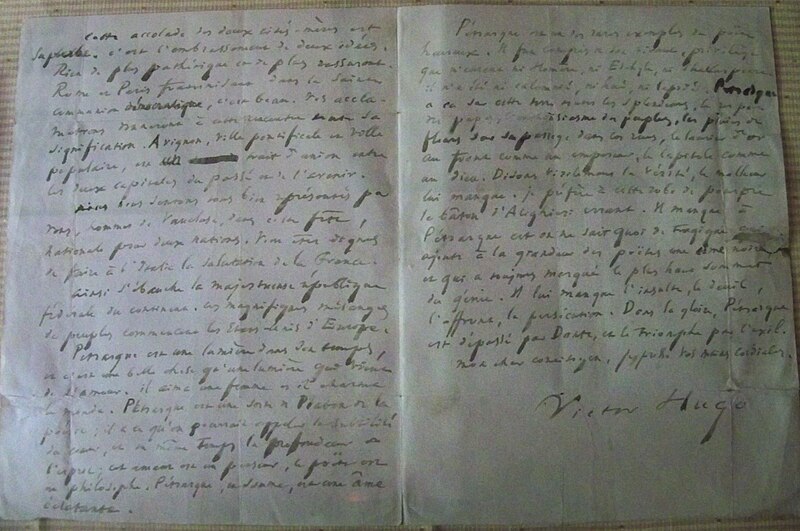 cette accolade des deux cités-mères est
superbe. c'est l'embrassement de deux idées.
Rien de plus pathétique et de plus rassurant.
Rome et Paris fraternisant dans la sainte
communion démocratique, c'est beau. Vos accla-
mations donneront à cette rencontre toute sa
signification. Avignon, ville pontificale et ville
populaire, est un trait d'union entre
les deux capitales du passé et de l'avenir.
nous nous sentons tous bien représentés par
vous, hommes de Vaucluse, dans cette fête,
nationale pour deux nations. Vous êtes dignes
de faire à l'Italie la salutation de la France.
Ainsi s'ébauche la majestueuse république
fédérale du continent. ces magnifiques mélanges
de peuples commencent les États-Unis d'Europe.
Pétrarque est une lumière dans son temps,
et c'est une belle chose qu'une lumière qui vient
de l'amour. il aima une femme et il charma
le monde. Pétrarque est une sorte de Platon de la
poésie; il a ce qu'on pourrait appeler la subtilité
du cœur, et en même temps la profondeur de
l'esprit; cet amant est un penseur, le poëte est
un philosophe. Pétrarque, en somme, est une âme
éclatante.
Pétrarque est un des rares exemples du poëte
heureux. Il fut compris de son vivant, privilège
que n'eurent ni Homère, ni Eschyle, ni Shakespeare.
il n'a été ni calomnié, ni hué, ni lapidé. Pétrarque
a eu sur cette terre toutes les splendeurs, le respect
des papes, l'enthousiasme des peuples, les pluies de
fleurs sur son passage dans les rues, le laurier d'or
au front comme un empereur, le capitole comme
un dieu. Disons virilement la vérité, le malheur
lui manque. je préfère à cette robe de pourpre
le bâton d'Alighieri errant. Il manque à
Pétrarque cet on ne sait quoi de tragique qui
ajoute à la grandeur des poëtes une cime noire
et qui a toujours marqué le plus haut sommet
du génie. Il lui manque l'insulte, le deuil,
l'affront, la persécution. Dans la gloire, Pétrarque
est dépassé par Dante, et le triomphe par l'exil.
mon cher concitoyen, vos mains cordiales.
Victor Hugo